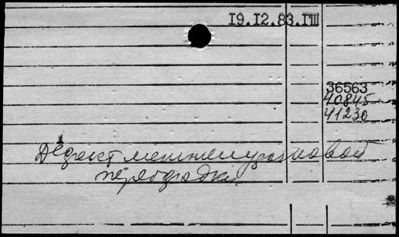 19.12.83.ГШ
36563
40845
41230
Дефект межжелудочковой
перегородки